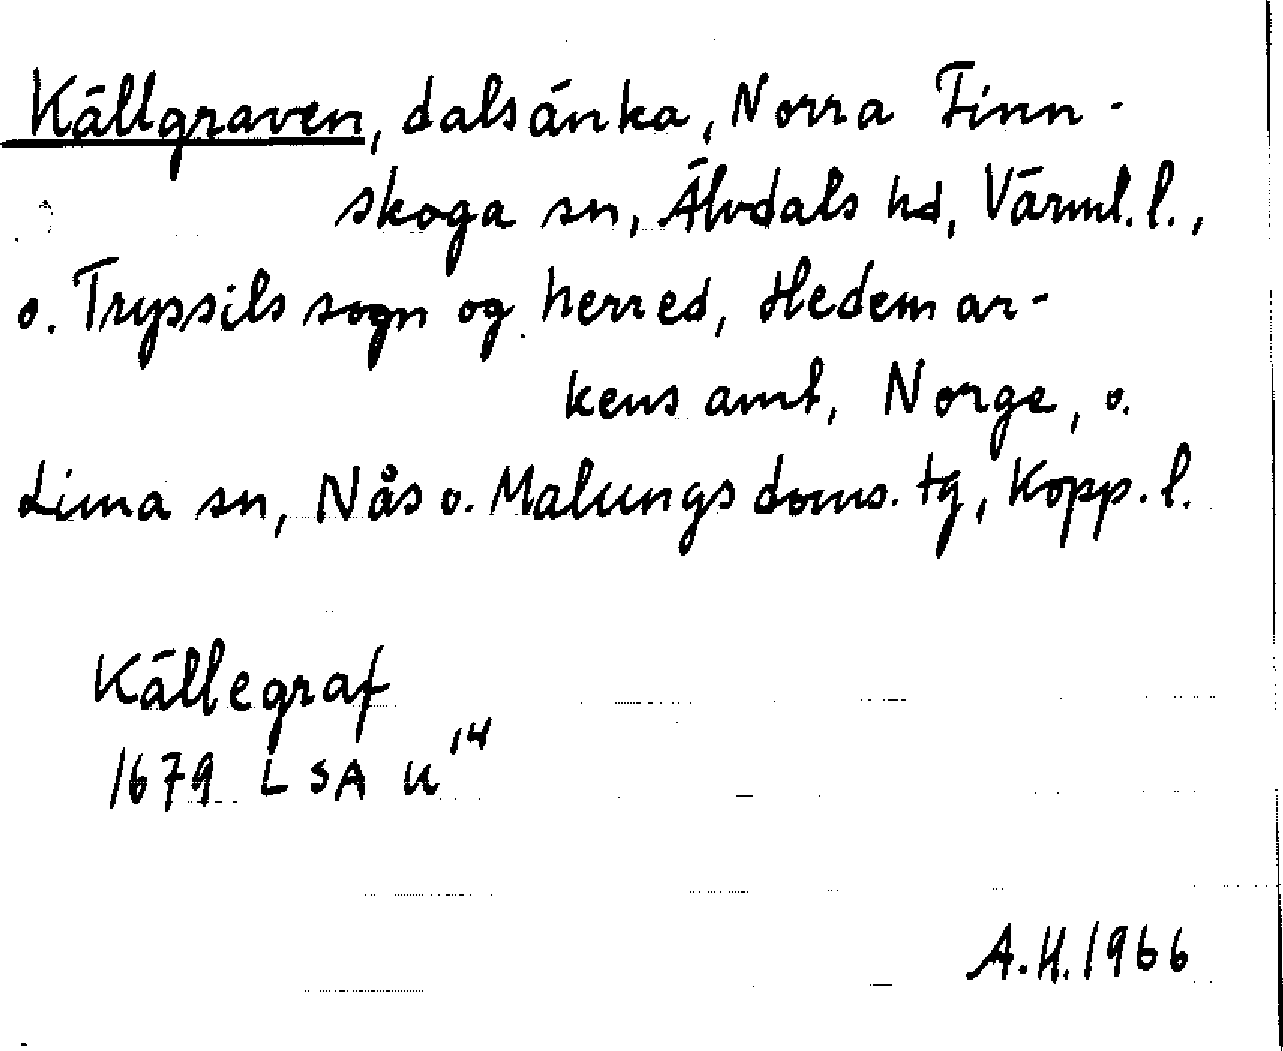 Källgraven, dalsänka, Norra Finn-
skoga sn, Älvdals hd, Värml. l.,
o. Tryssils sogn og herred, Hedemar-
kens amt, Norge, o.
Lima sn, Nås o. Malungs doms. tg, Kopp. l.
Källegraf
1679 LSA U14
A.H. 1966